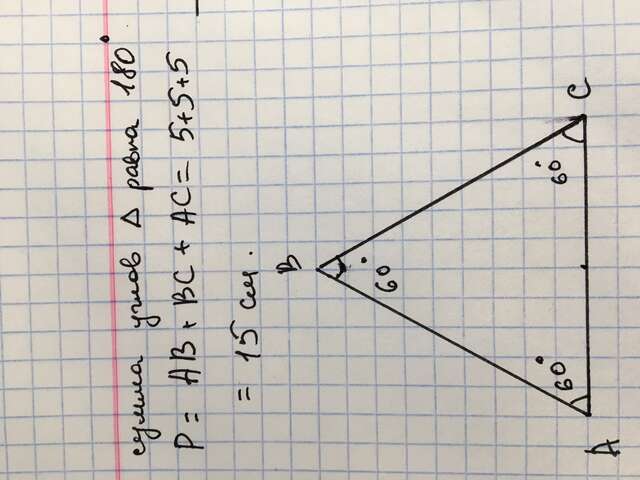 сумма углов Δ равна 180°
P = AB + BC + AC = 5+5+5
= 15 см.
B
60°
60°
60°
A
C